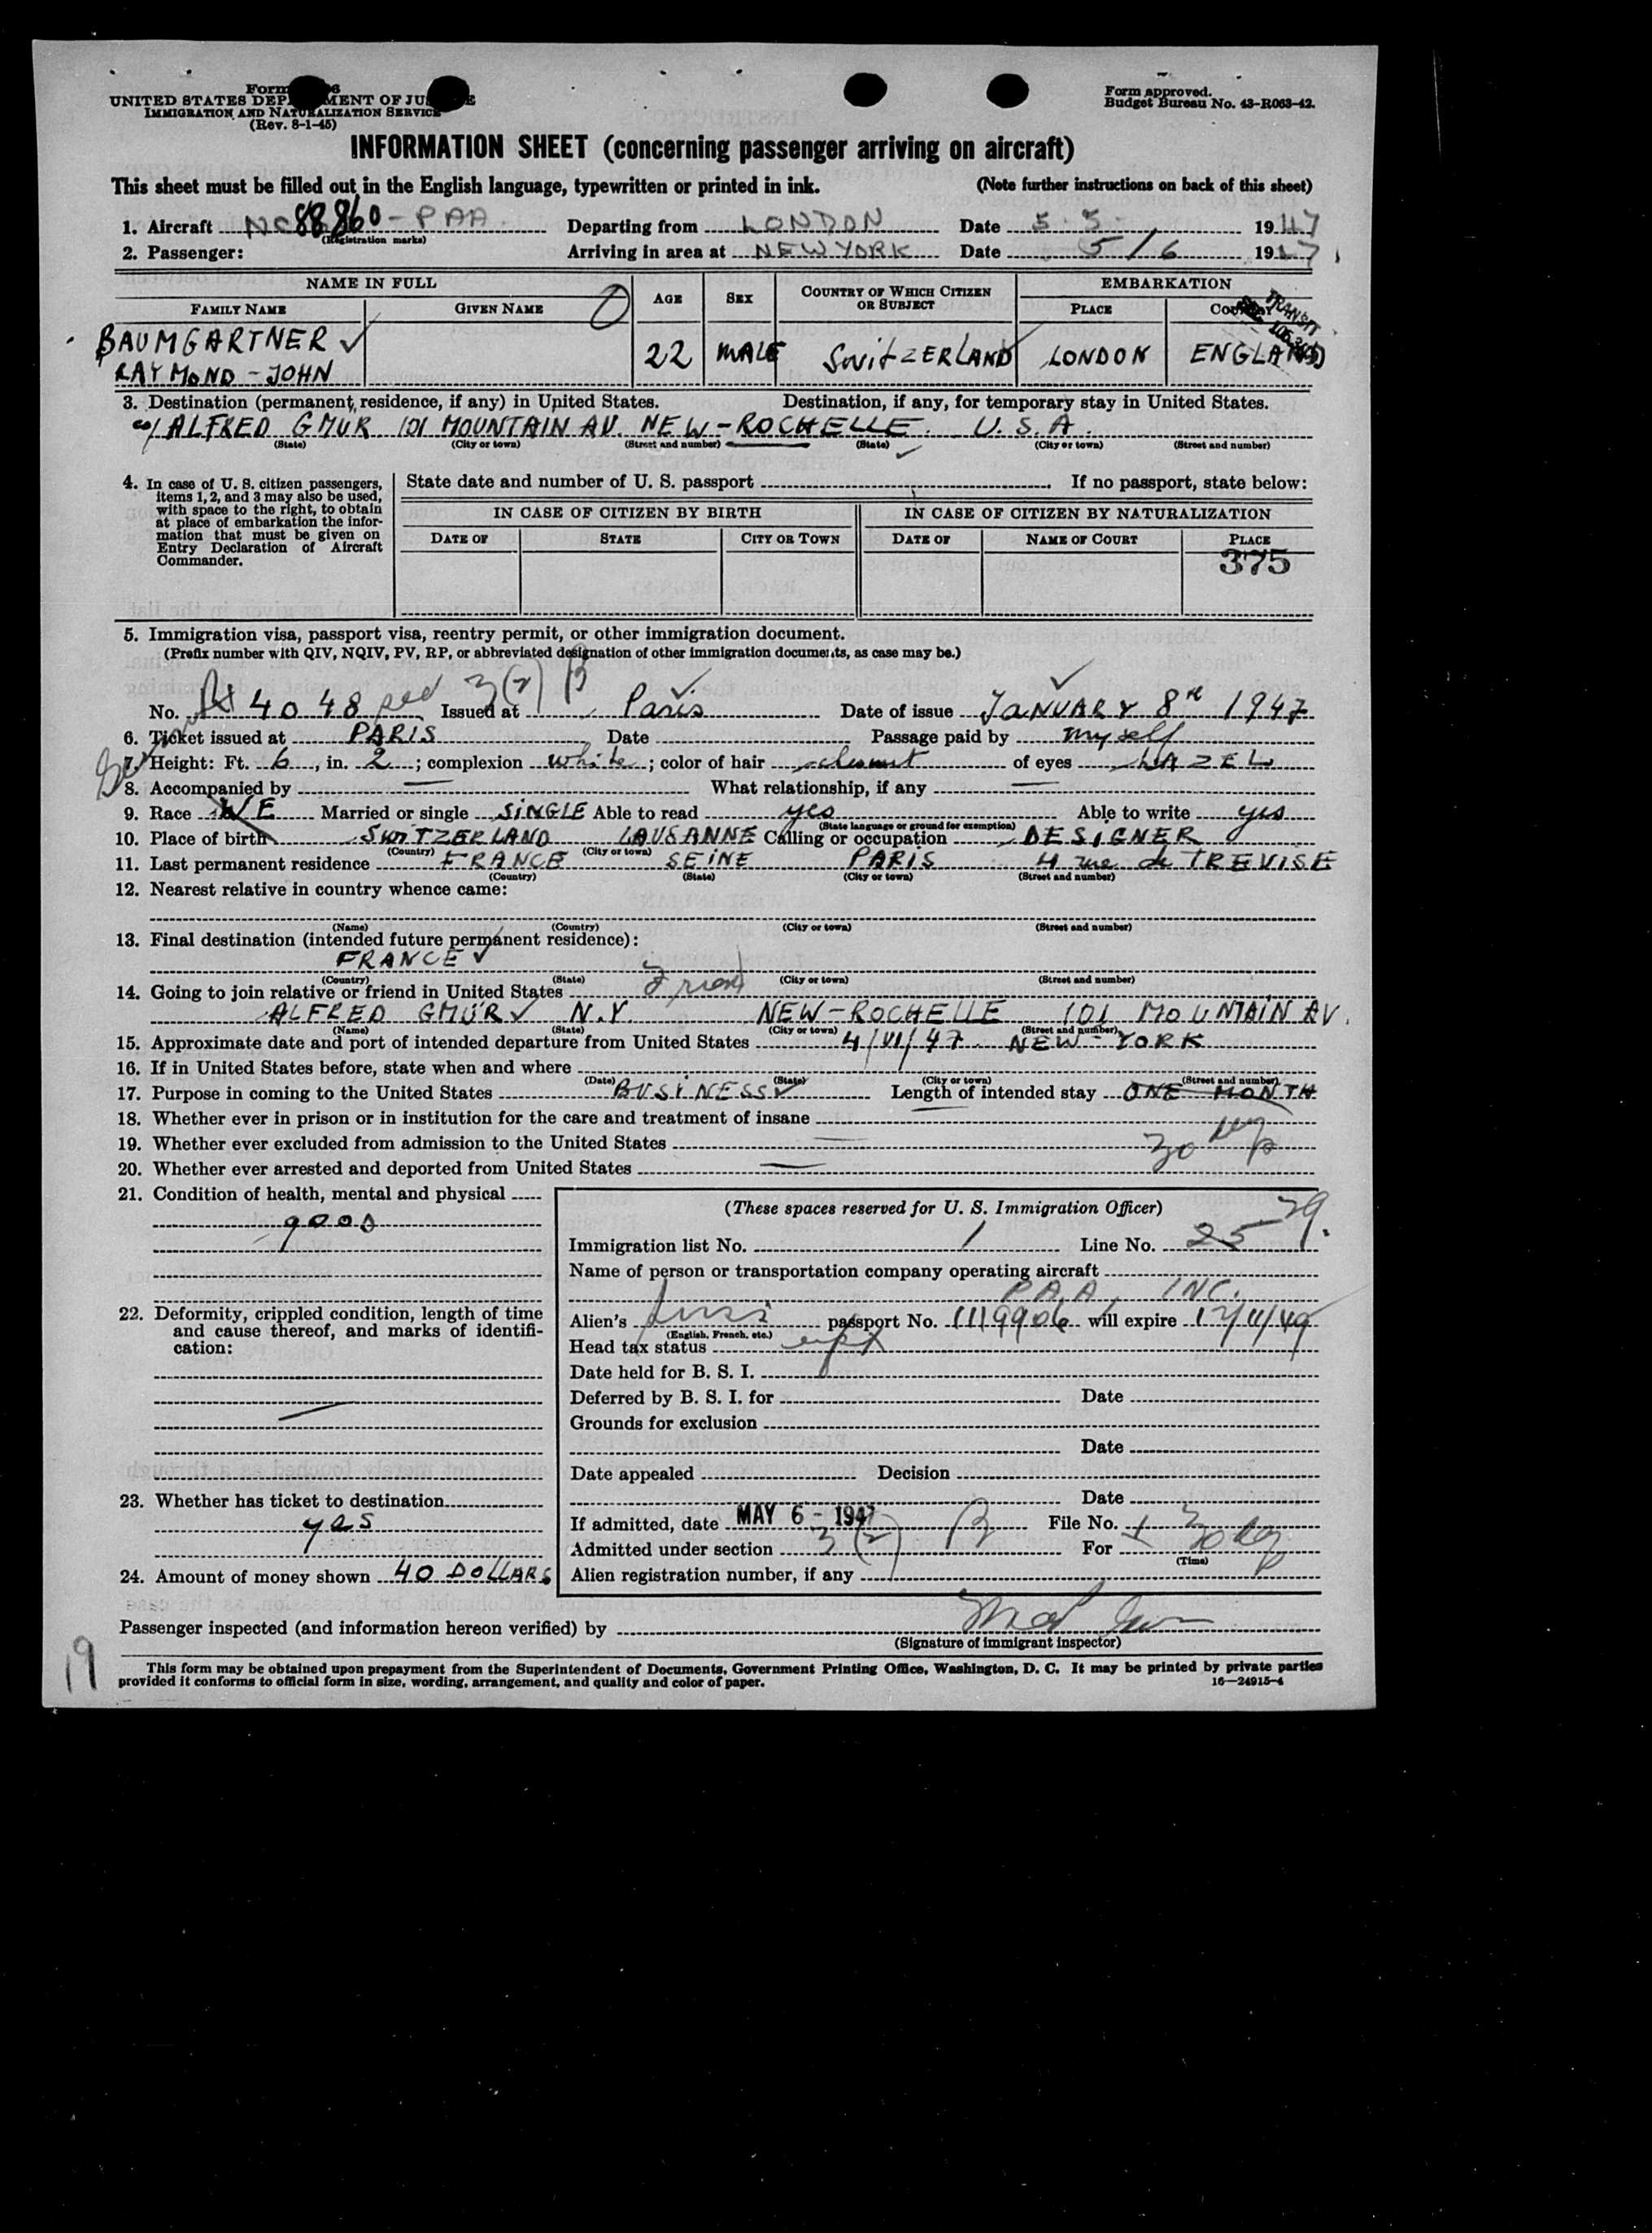 Form
UNITED STATES DEPARTMENT OF JUSTICE
IMMIGRATION AND NATURALIZATION SERVICE
(Rev. 8-1-45)
Form approved.
Budget Bureau No. 43-R063-42.
INFORMATION SHEET (concerning passenger arriving on aircraft)
This sheet must be filled out in the English language, typewritten or printed in ink. (Note further instructions on back of this sheet)
1. Aircraft NC 88860 - PAA. Departing from LONDON Date 5.5. 1947
(Registration marks)
2. Passenger: Arriving in area at NEW YORK Date 5/6 1947
NAME IN FULL AGE SEX COUNTRY OF WHICH CITIZEN OR SUBJECT EMBARKATION
FAMILY NAME GIVEN NAME PLACE COUNTRY
TRANSIT
BAUMGARTNER ✓
RAYMOND - JOHN 22 MALE SWITZERLAND LONDON ENGLAND
3. Destination (permanent, residence, if any) in United States. Destination, if any, for temporary stay in United States.
c/o ALFRED GMUR 101 MOUNTAIN AV. NEW-ROCHELLE. U.S.A.
(State) (City or town) (Street and number) (State) (City or town) (Street and number)
4. In case of U. S. citizen passengers, items 1, 2, and 3 may also be used, with space to the right, to obtain at place of embarkation the information that must be given on Entry Declaration of Aircraft Commander.
State date and number of U. S. passport If no passport, state below:
IN CASE OF CITIZEN BY BIRTH IN CASE OF CITIZEN BY NATURALIZATION
DATE OF STATE CITY OR TOWN DATE OF NAME OF COURT PLACE
375
5. Immigration visa, passport visa, reentry permit, or other immigration document.
(Prefix number with QIV, NQIV, PV, RP, or abbreviated designation of other immigration documents, as case may be.)
3(2) B
No. 4048 Issued at Paris Date of issue JANUARY 8 1947
6. Ticket issued at PARIS Date Passage paid by myself
7. Height: Ft. 6, in. 2; complexion white; color of hair of eyes HAZEL
8. Accompanied by — What relationship, if any —
9. Race WE Married or single SINGLE Able to read yes Able to write yes
(State language or ground for exemption)
10. Place of birth SWITZERLAND LAUSANNE Calling or occupation DESIGNER
(Country) (City or town)
11. Last permanent residence FRANCE SEINE PARIS 4 rue de TREVISE
(Country) (State) (City or town) (Street and number)
12. Nearest relative in country whence came:
(Name) (Country) (City or town) (Street and number)
13. Final destination (intended future permanent residence):
FRANCE ✓
(Country) (State) (City or town) (Street and number)
14. Going to join relative or friend in United States Friend
ALFRED GMÜR ✓ N.Y. NEW-ROCHELLE 101 MOUNTAIN AV.
(Name) (State) (City or town) (Street and number)
15. Approximate date and port of intended departure from United States 4/VI/47. NEW-YORK
16. If in United States before, state when and where
(Date) (State) (City or town) (Street and number)
17. Purpose in coming to the United States BUSINESS ✓ Length of intended stay ONE MONTH
18. Whether ever in prison or in institution for the care and treatment of insane —
19. Whether ever excluded from admission to the United States — 30
20. Whether ever arrested and deported from United States —
21. Condition of health, mental and physical
good
22. Deformity, crippled condition, length of time and cause thereof, and marks of identification:
—
23. Whether has ticket to destination
yes
24. Amount of money shown 40 DOLLARS
(These spaces reserved for U. S. Immigration Officer)
Immigration list No. 1 Line No. 25 29.
Name of person or transportation company operating aircraft
P.A.A. INC.
Alien's passport No. 1119906 will expire 12/11/49
(English, French, etc.)
Head tax status
Date held for B. S. I.
Deferred by B. S. I. for Date
Grounds for exclusion
Date
Date appealed Decision
Date
If admitted, date MAY 6 - 1947 File No.
Admitted under section 3(2) B For 30
(Time)
Alien registration number, if any
Passenger inspected (and information hereon verified) by
(Signature of immigrant inspector)
19
This form may be obtained upon prepayment from the Superintendent of Documents, Government Printing Office, Washington, D. C. It may be printed by private parties
provided it conforms to official form in size, wording, arrangement, and quality and color of paper. 16—24915-4